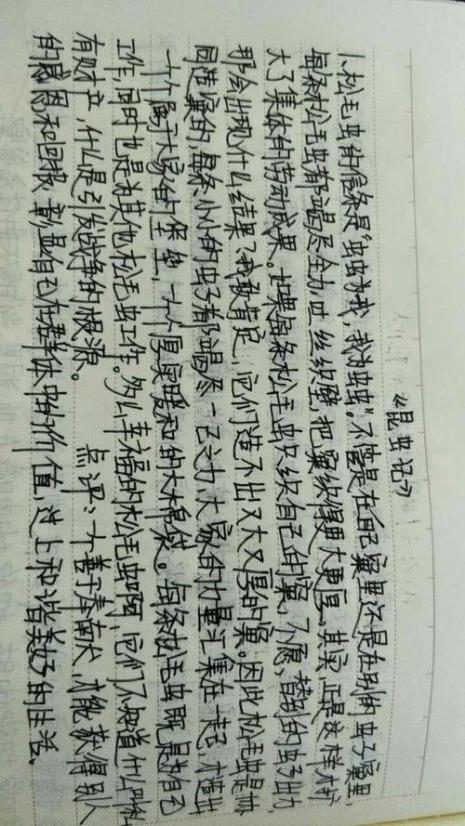 《昆虫记》
1、松毛虫的信条是“虫虫为我，我为虫虫”。不管是在自己窠里还是在别的虫子窠里，
每条松毛虫都竭尽全力，吐丝织壁，把窠织得更大更厚。其实，正是这样才扩
大了集体的劳动成果。如果每条松毛虫只织自己的窠，不愿替别的虫子出力，
那会出现什么结果？我敢肯定，它们造不出又大又厚的窠。因此松毛虫是协
同造窠的，每条小小的虫子都竭尽一己之力，大家的力量汇集在一起，才造出
一个个属于大家的堡垒，一个个厚实暖和的大棉袋。每条松毛虫既是为自己
工作，同时也是为其他松毛虫工作。多么幸福的松毛虫啊，它们不知道什么叫私
有财产，什么是引发战争的根源。 点评：一个善于奉献的人，才能获得别人
的感恩和回报，彰显自己在群体中的价值，过上和谐美好的生活。